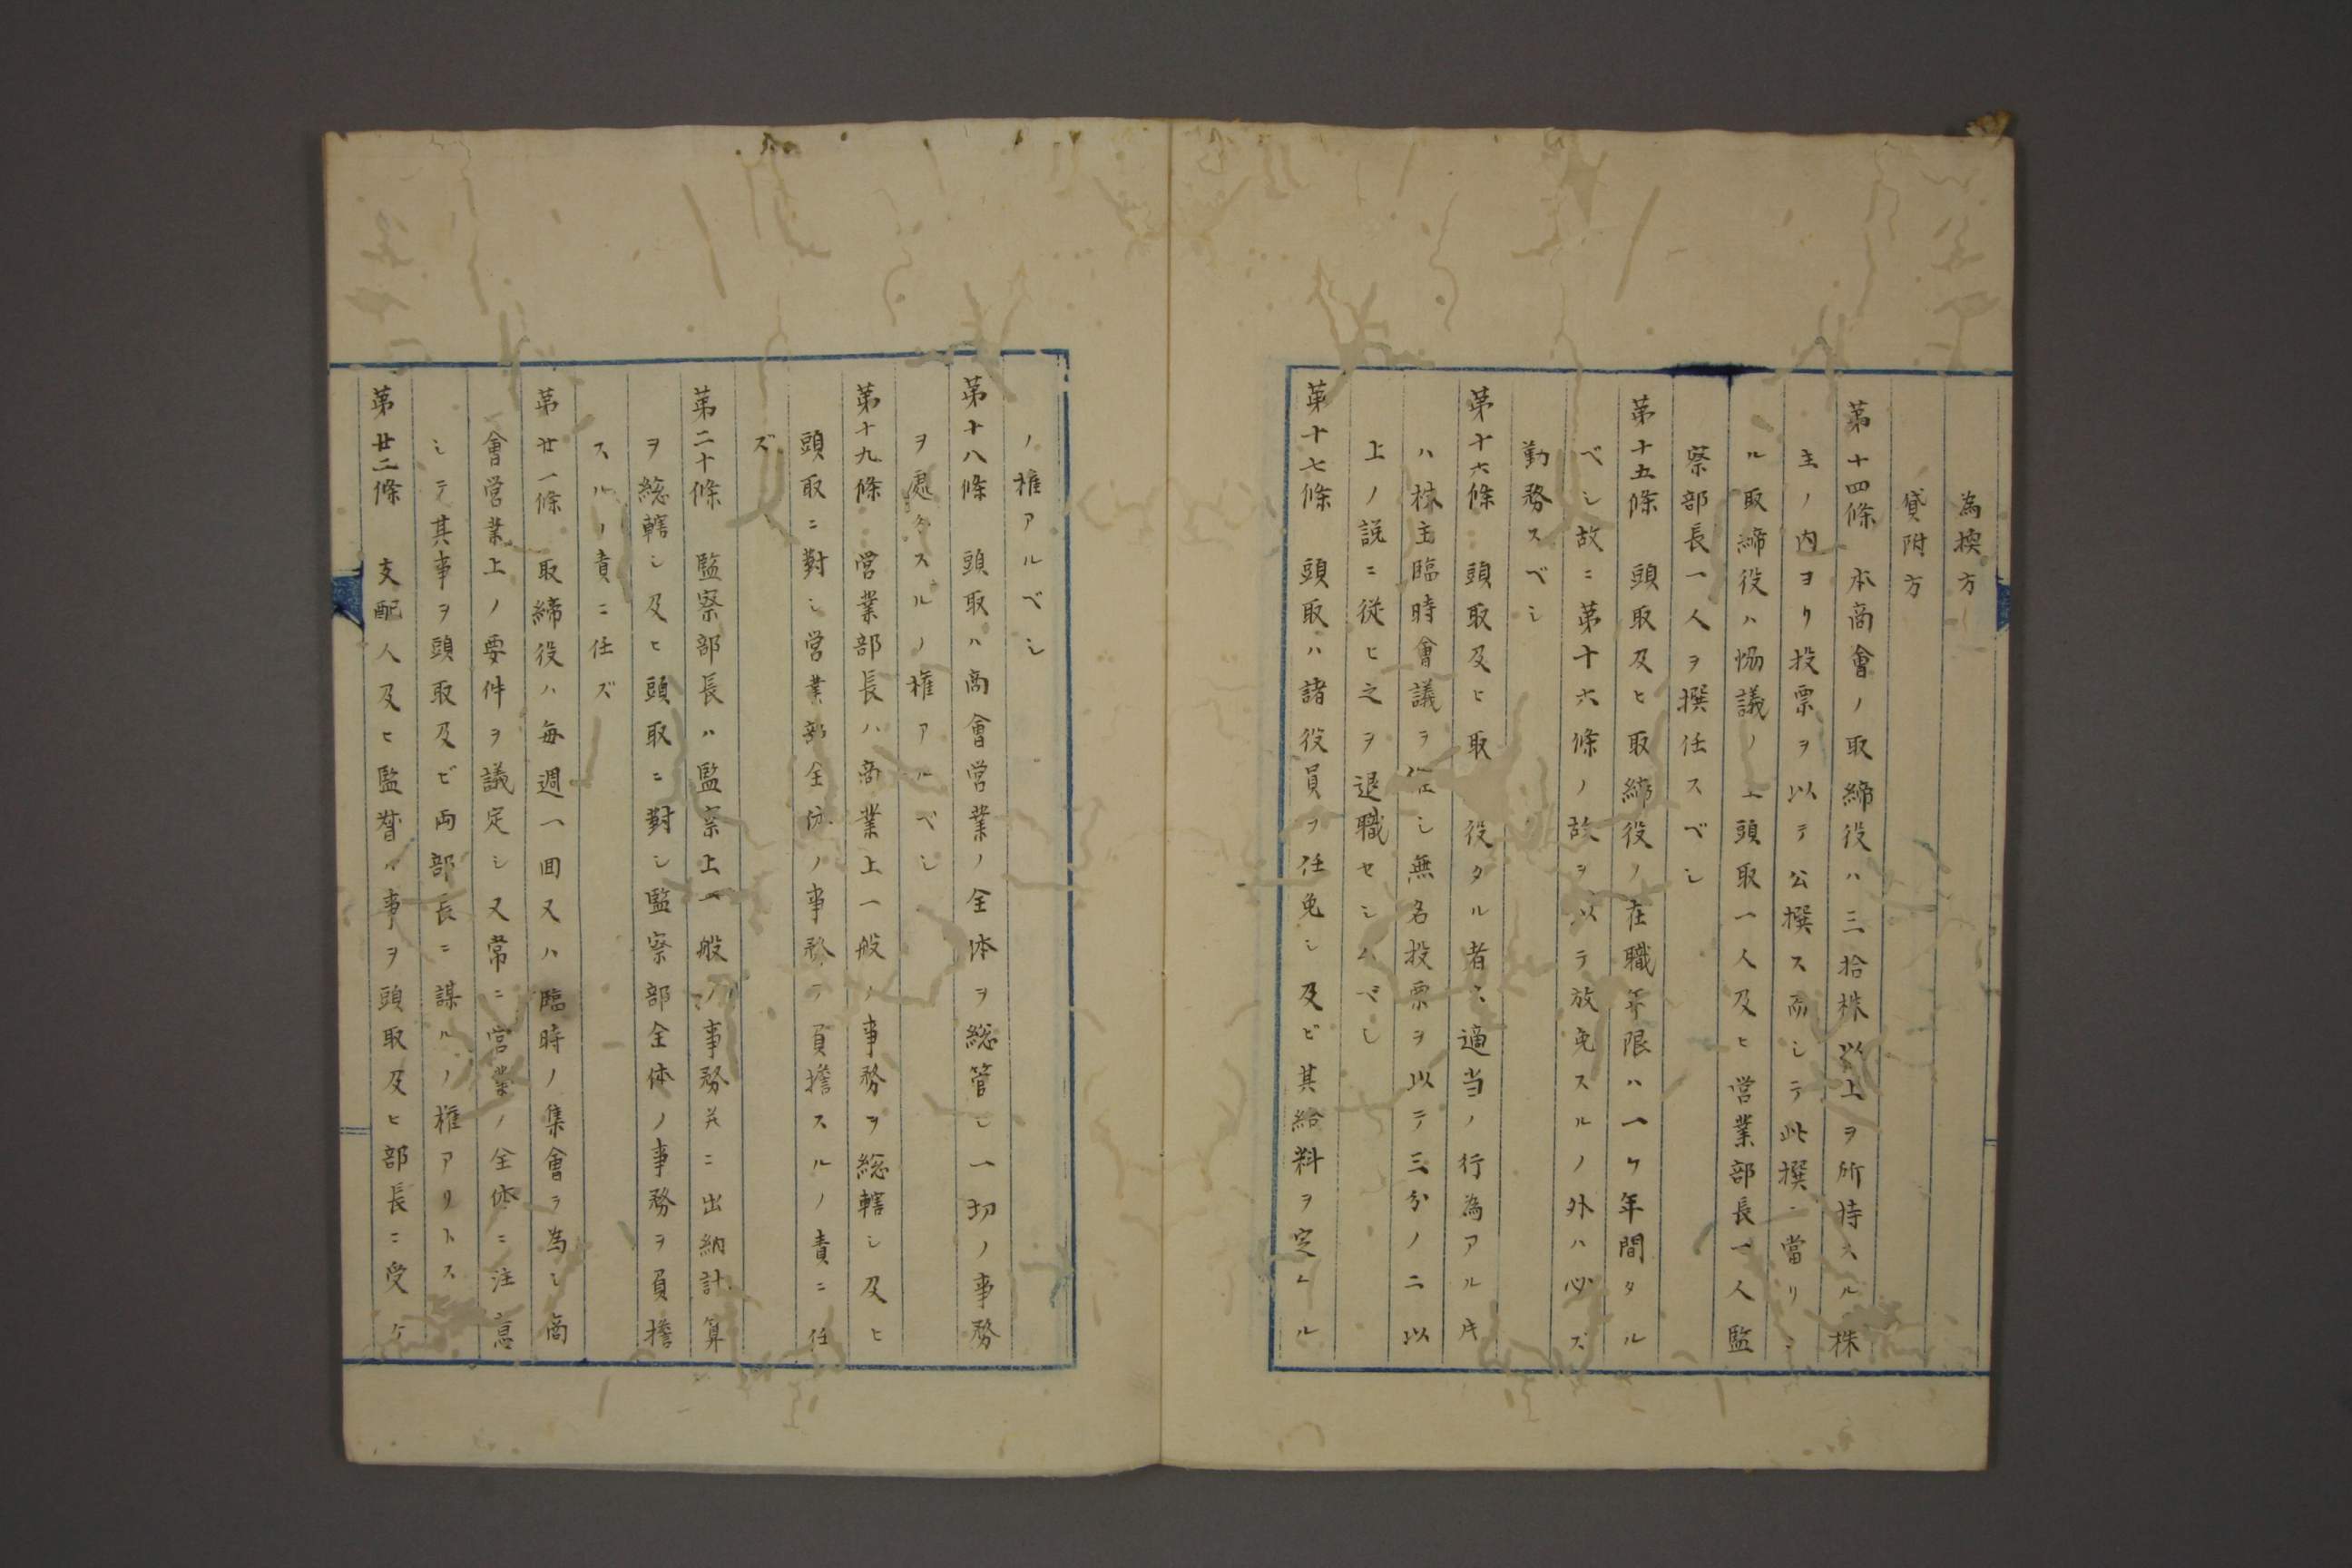 為換方
貸附方
第十四條 本商會ノ取締役ハ三拾株以上ヲ所持スル株
主ノ内ヨリ投票ヲ以テ公撰ス而シテ此撰ニ當リシ
ル取締役ハ協議ノ上頭取一人及ヒ営業部長一人監
察部長一人ヲ撰任スベシ
第十五條 頭取及ヒ取締役ノ在職年限ハ一ケ年間タル
ベシ故ニ第十六條ノ故ヲ以テ放免スルノ外ハ必ズ
勤務スベシ
第十六條 頭取及ヒ取 役タル者ニ適当ノ行為アル片
ハ株主臨時會議ヲ シ無名投票ヲ以テ三分ノ二以
上ノ説ニ従ヒ之ヲ退職セシムベシ
第十七條 頭取ハ諸役員ヲ任免シ及ビ其給料ヲ定ムル
ノ権アルベシ
第十八條 頭取ハ商會営業ノ全体ヲ総管シ一切ノ事務
ヲ處分スルノ権アルベシ
第十九條 営業部長ハ商業上一般ノ事務ヲ総轄シ及ヒ
頭取ニ對シ営業部全体ノ事務ヲ負擔スルノ責ニ任
ズ
第二十條 監察部長ハ監察上一般ノ事務并ニ出納計算
ヲ総轄シ及ヒ頭取ニ對シ監察部全体ノ事務ヲ負擔
スルノ責ニ任ズ
第廿一條 取締役ハ毎週一回又ハ臨時ノ集會ヲ為シ商
會営業上ノ要件ヲ議定シ又常ニ営業ノ全体ニ注意
シテ其事ヲ頭取及ビ両部長ニ謀ルノ権アリトス
第廿二條 支配人及ヒ監督ハ事ヲ頭取及ヒ部長ニ受ケ